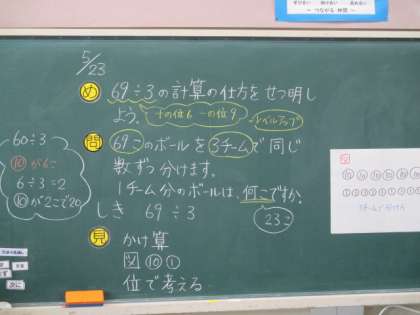 5/23
め 69÷3の計算の仕方をせつ明し
よう。 十の位6 一の位9 レベルアップ
60÷3
⑩が6こ
6÷3=2
⑩が2こで20
問 69このボールを3チームで同じ
数ずつ分けます。
1チーム分のボールは、何こですか。
しき 69÷3
23こ
見 かけ算
図 ⑩ ①
位で考える
図
⑩ ⑩ ⑩ ⑩ ⑩ ⑩
① ① ① ① ① ① ① ① ①
つながる 仲間
次に